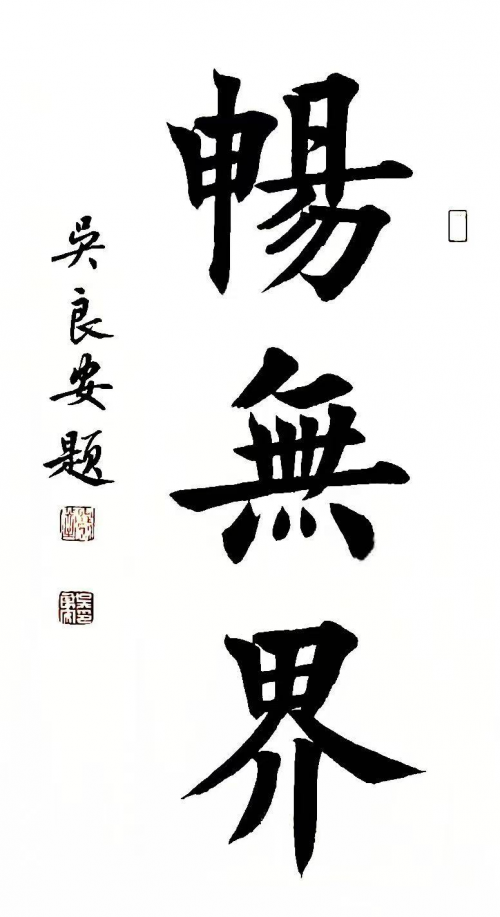 暢無界
吳良安題